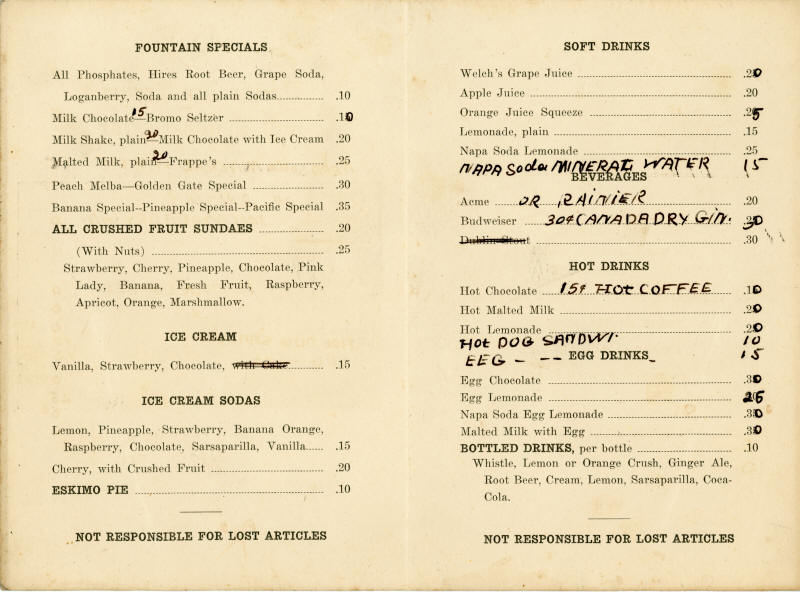 FOUNTAIN SPECIALS
All Phosphates, Hires Root Beer, Grape Soda,
Loganberry, Soda and all plain Sodas .10
Milk Chocolate 15—Bromo Seltzer .10
Milk Shake, plain 20—Milk Chocolate with Ice Cream .20
Malted Milk, plain 20—Frappe's .25
Peach Melba—Golden Gate Special .30
Banana Special--Pineapple Special--Pacific Special .35
ALL CRUSHED FRUIT SUNDAES .20
(With Nuts) .25
Strawberry, Cherry, Pineapple, Chocolate, Pink
Lady, Banana, Fresh Fruit, Raspberry,
Apricot, Orange, Marshmallow.
ICE CREAM
Vanilla, Strawberry, Chocolate, with Cake .15
ICE CREAM SODAS
Lemon, Pineapple, Strawberry, Banana Orange,
Raspberry, Chocolate, Sarsaparilla, Vanilla .15
Cherry, with Crushed Fruit .20
ESKIMO PIE .10
NOT RESPONSIBLE FOR LOST ARTICLES
SOFT DRINKS
Welch's Grape Juice .20
Apple Juice .20
Orange Juice Squeeze .25
Lemonade, plain .15
Napa Soda Lemonade .25
NAPA Soda MINERAL WATER 15
BEVERAGES
Acme OR RAINIER .20
Budweiser 30¢ CANADA DRY GIN. 30
Dublin Stout .30
HOT DRINKS
Hot Chocolate 15¢ HOt COFFEE .10
Hot Malted Milk .20
Hot Lemonade .20
Hot DOG SANDWI. 10
EEG - -- 15
EGG DRINKS
Egg Chocolate .30
Egg Lemonade 25
Napa Soda Egg Lemonade .30
Malted Milk with Egg .30
BOTTLED DRINKS, per bottle .10
Whistle, Lemon or Orange Crush, Ginger Ale,
Root Beer, Cream, Lemon, Sarsaparilla, Coca-
Cola.
NOT RESPONSIBLE FOR LOST ARTICLES